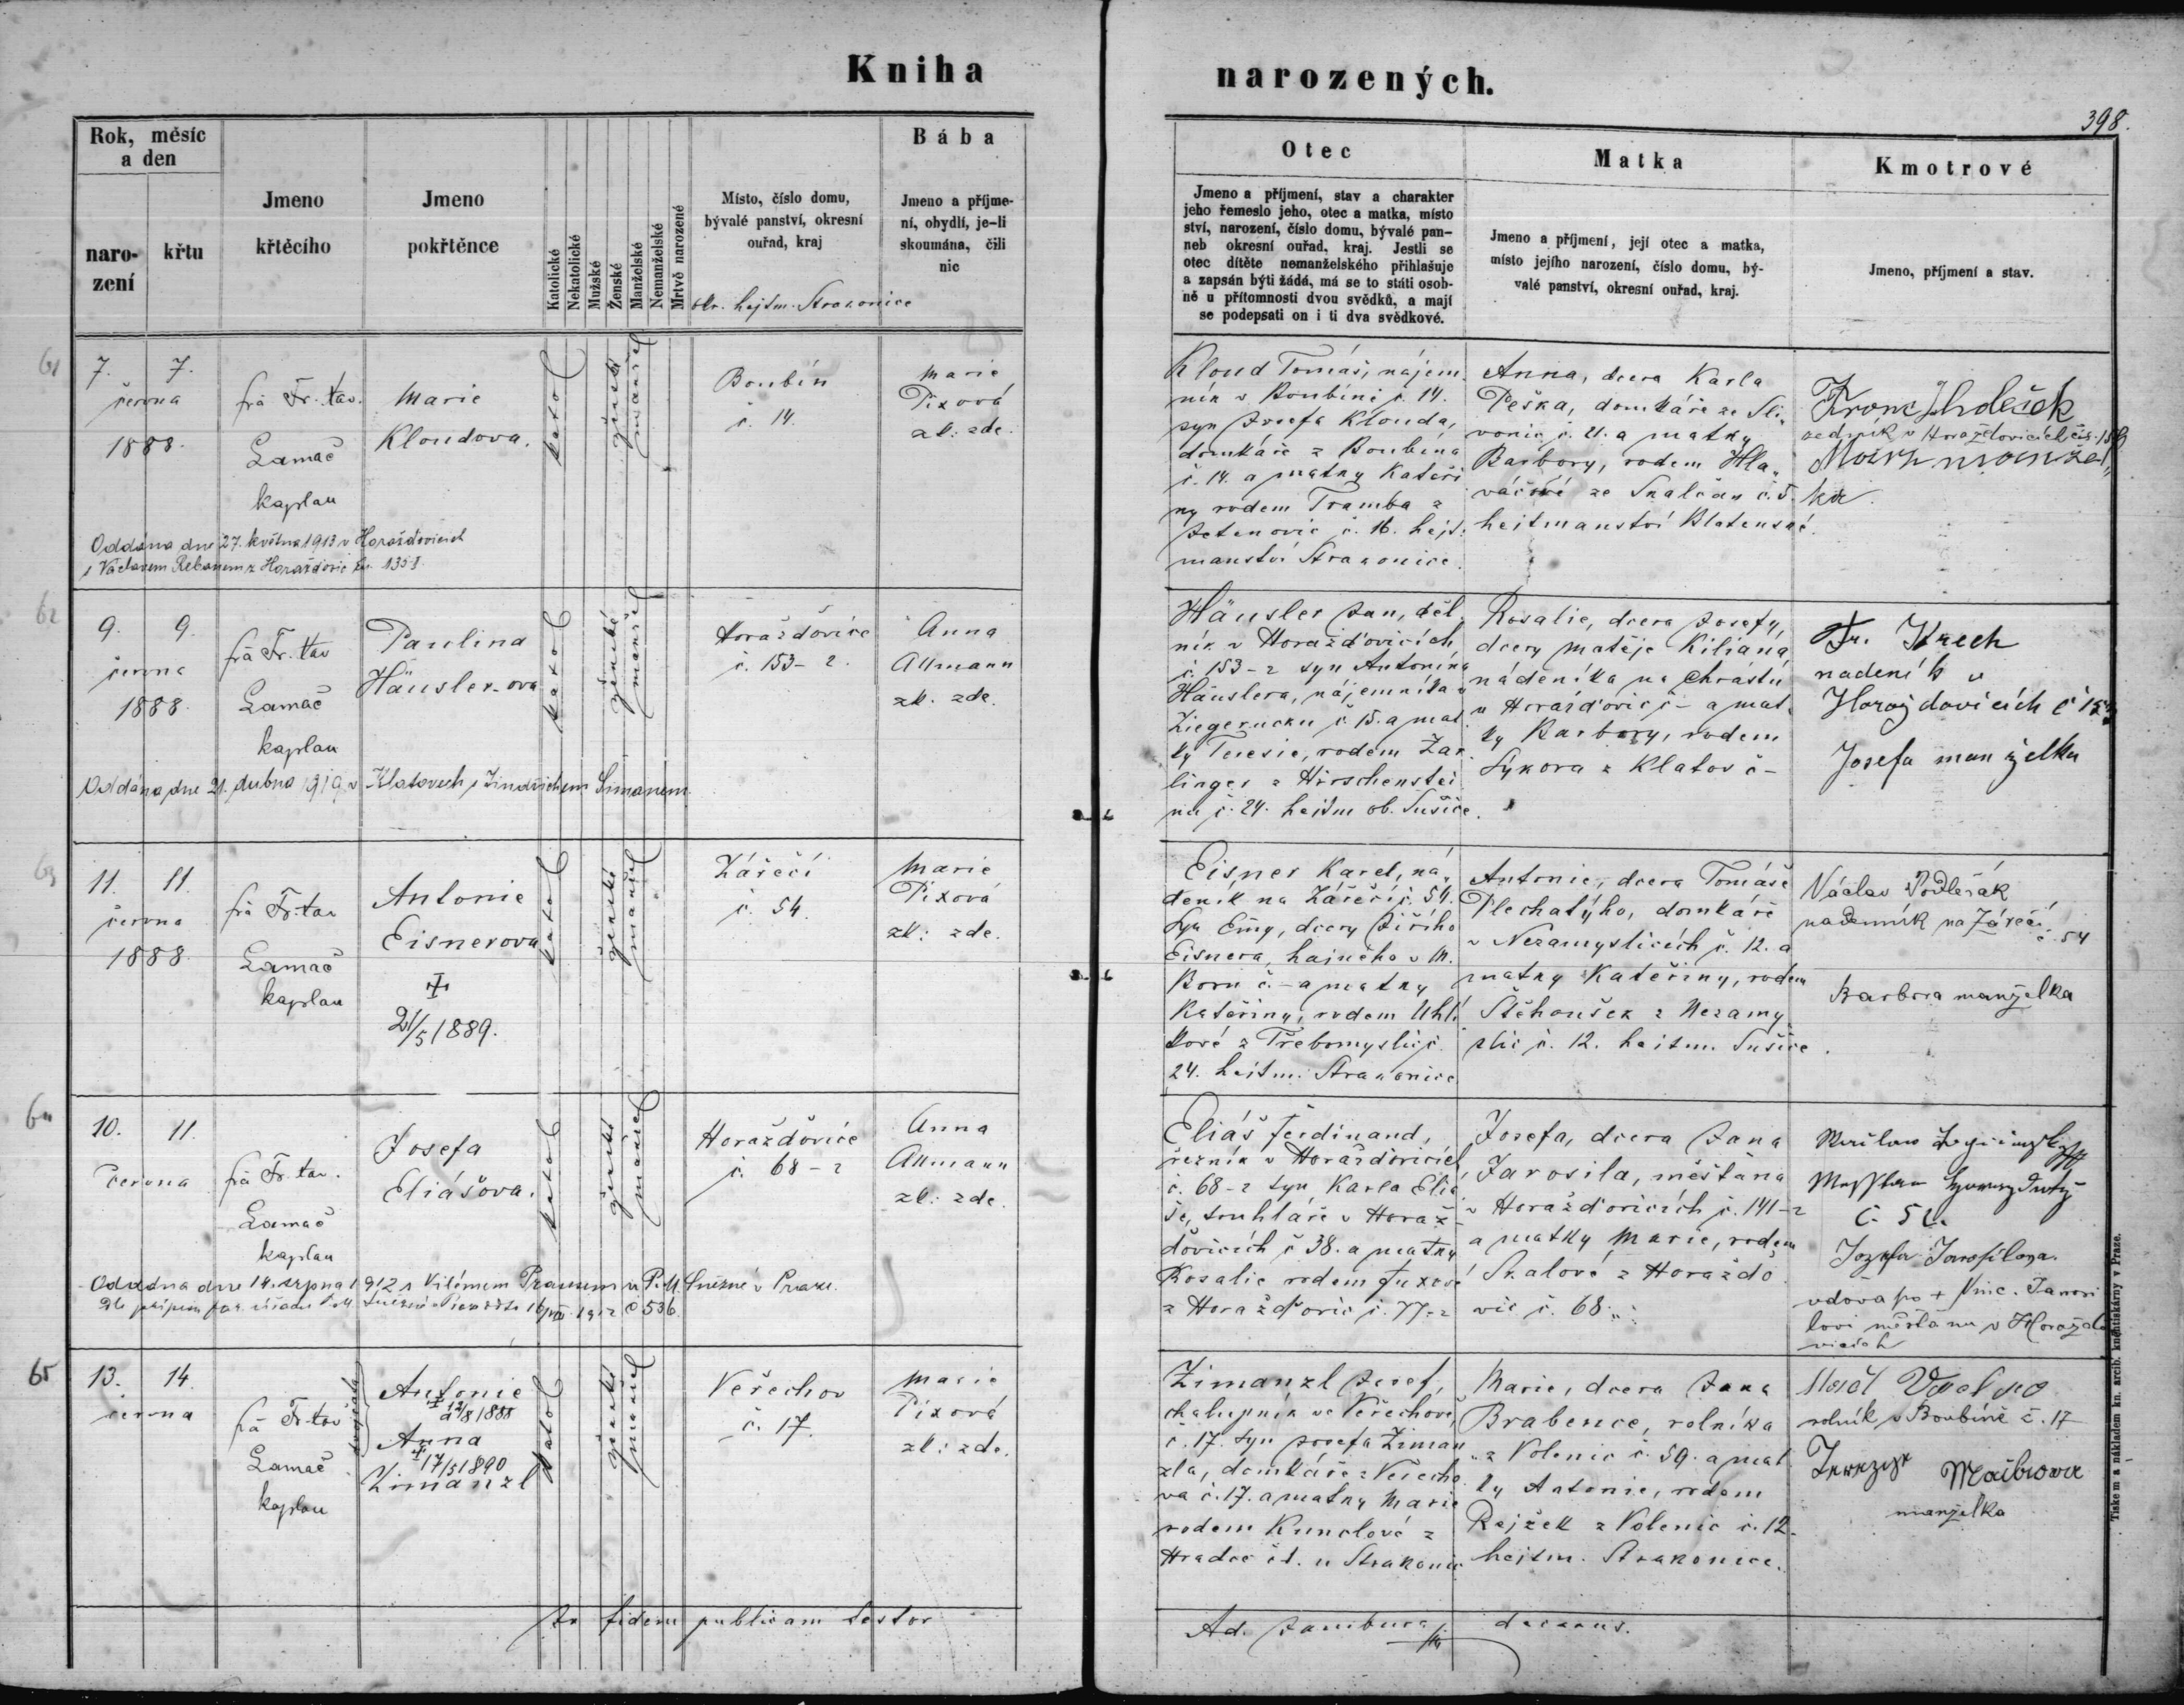 Kniha narozených.
398.
Rok, měsíc a den
naro-
zení
křtu
Jmeno
křtěcího
Jmeno
pokřtěnce
Katolické
Nekatolické
Mužské
Ženské
Manželské
Nemanželské
Mrtvě narozené
Místo, číslo domu,
bývalé panství, okresní
ouřad, kraj
okr. hejtm. Strakonice
Bába
Jmeno a příjme-
ní, obydlí, je-li
skoumána, čili
nic
Otec
Jmeno a příjmení, stav a charakter
jeho řemeslo jeho, otec a matka, místo
ství, narození, číslo domu, bývalé pan-
neb okresní ouřad, kraj. Jestli se
otec dítěte nemanželského přihlašuje
a zapsán býti žádá, má se to státi osob-
ně u přítomnosti dvou svědků, a mají
se podepsati on i ti dva svědkové.
Matka
Jmeno a příjmení, její otec a matka,
místo jejího narození, číslo domu, bý-
valé panství, okresní ouřad, kraj.
Kmotrové
Jmeno, příjmení a stav.
61
7. 7.
června
1888.
Fr. Xav.
Lamač
kaplan
Marie
Kloudova.
katol
ženské
manžel
Boubín
č. 14.
Marie
Pixová
zk. zde.
Kloud Tomáš, nájem
ník v Boubíně č. 14.
syn Josefa Klouda,
domkáře z Boubína
č. 14. a matky Kateři
ny rodem Tramba z
Jetenovic č. 16. hejt-
manství Strakonice.
Anna, dcera Karla
Peška, domkáře ze Sli
vonic č. 21. a matky
Barbory, rodem Hla
váčové ze Skalčan č. 5.
hejtmanství Blatenské.
zedník v Horažďovicích
manžel
ka
Oddána dne 27. května 1913 v Horažďovicích
s Václavem Rebanem z Horažďovic
62
9. 9.
června
1888.
Fr. Xav
Lamač
kaplan
Paulina
Häusler-ova
katol
ženské
manžel
Horažďovice
č. 153-2.
Anna
Altmann
zk. zde.
Häusler Jan, děl
ník v Horažďovicích
č. 153-2 syn Antonína
Häuslera, nájemníka v
Ziegerucku č. 15. a mat
ky Teresie, rodem Zar
linger z Hirschenstei
nu č. 24. hejtm ob. Sušice.
Rosalie, dcera Josefy,
dcery Matěje Kiliána
nádeníka na Chrástu
u Horažďovic č - a mat
ky Barbory, rodem
Sýkora z Klatov č-
Fr. Krech
nadeník v
Horaždovicích
Josefa manželka
Oddána dne 21. dubna 1919 v Klatovech s Jindřichem Simanem
63
11. 11.
června
1888.
Fr. Xav
Lamač
kaplan
Antonie
Eisnerova
21/5 1889.
katol
ženské
manžel
Zářečí
č. 54.
Marie
Pixová
zk: zde.
Eisner Karel, ná
deník na Zářečí č. 54.
Syn Emy, dcery Jiřího
Eisnera, hajného v M.
Boru č.- a matky
Kateřiny, rodem Uhlí
kové z Třebomyslic č.
24. hejtm. Strakonice
Antonie, dcera Tomáše
Plechatýho, domkáře
v Nezamyslicích č. 12. a
matky Kateřiny, rodem
Štěhoušek z Nezamy
slic č. 12. hejtm. Sušice.
Václav Podlešák
nadenník na Zářečí
č. 54
Barbora manželka
64
10. 11.
června
Fr. Xav.
Lamač
kaplan
Josefa
Eliášova.
katol
ženské
manžel
Horažďovice
č. 68-2
Anna
Altmann
zk: zde.
Eliáš Ferdinand,
řezník v Horažďovicích
č. 68-2 syn Karla Eliá
še, truhláře v Horaž-
ďovicích č 38. a matky
Rosalie rodem Fuxové
z Horažďovic č. 77-2
Josefa, dcera Jana
Jarosila, měšťana
v Horažďovicích č. 141-2
a matky Marie, rodem
Skalové z Horaždo
vic č. 68.
Josefa Jarosilova.
vdova po + Vinc. Jarosi
lovi měšťanu v Horažďo
vicích
Oddána dne 14. srpna 1912 s Vilémem u P. M. Sněžné v Praze.
65
13. 14.
června
Fr. Xav
Lamač
kaplan
dvojčata
Antonie
12/8 1888
Anna
17/5 1890
Zimanzl
katol
ženské
manžel
Veřechov
č. 17.
Marie
Pixová
zk: zde.
Zimanzl Josef,
chalupník ve Veřechově,
č. 17. Syn Josefa Ziman
zla, domkáře z Veřecho
va č. 17. a matky Marie
rodem Kunclové z
Hradce č 1. u Strakonic
Marie, dcera Jana
Brabence, rolníka
z Volenic č. 59. a mat
ky Antonie, rodem
Rejžek z Volenic č. 12.
hejtm. Strakonice.
rolník v Boubíně č. 17
manželka
In fidem publicam testor
Ad. Jambura decanus.
Tiskem a nákladem kn. arcib. knihtiskárny v Praze.